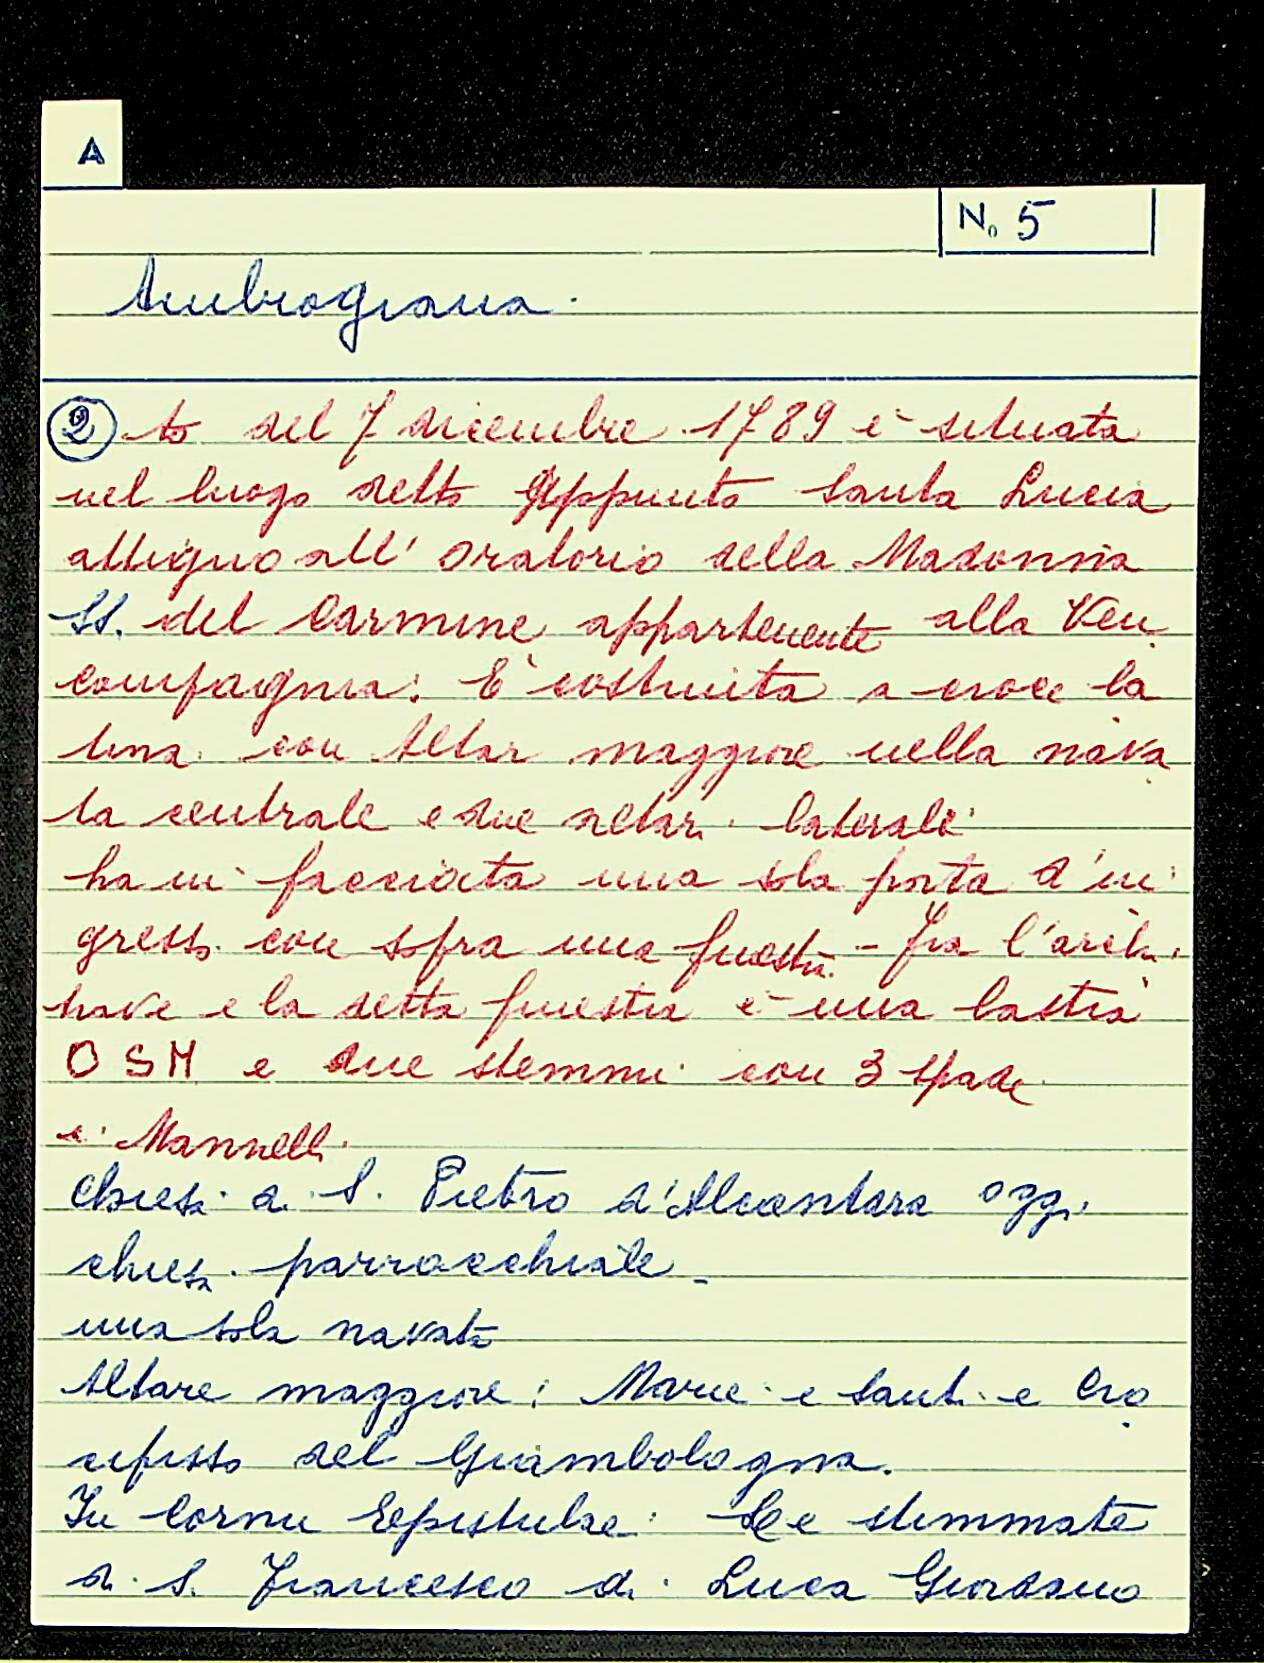 A
No 5
Ambrogiana.
② to del 7 dicembre 1789 è situata
nel luogo detto Appunto Santa Lucia
attiguo all' oratorio della Madonna
SS. del Carmine appartenente alla Ven.
compagnia. È costruita a croce la
tina con Altar maggiore nella nava
ta centrale e due altari laterali
ha in facciata una sola porta d'in
gresso con sopra una finestra - fra l'archi
trave e la detta finestra è una lastra
O S M e due stemmi con 3 spade
e i Mannelli
chiesa di S. Pietro d'Alcantara oggi
chiesa parrocchiale -
una sola navata
Altare maggiore: Marie e Santi e Cro
cifisso del Giambologna.
In Cornu Epistulae: Le stimmate
di S. Francesco di Luca Giordano